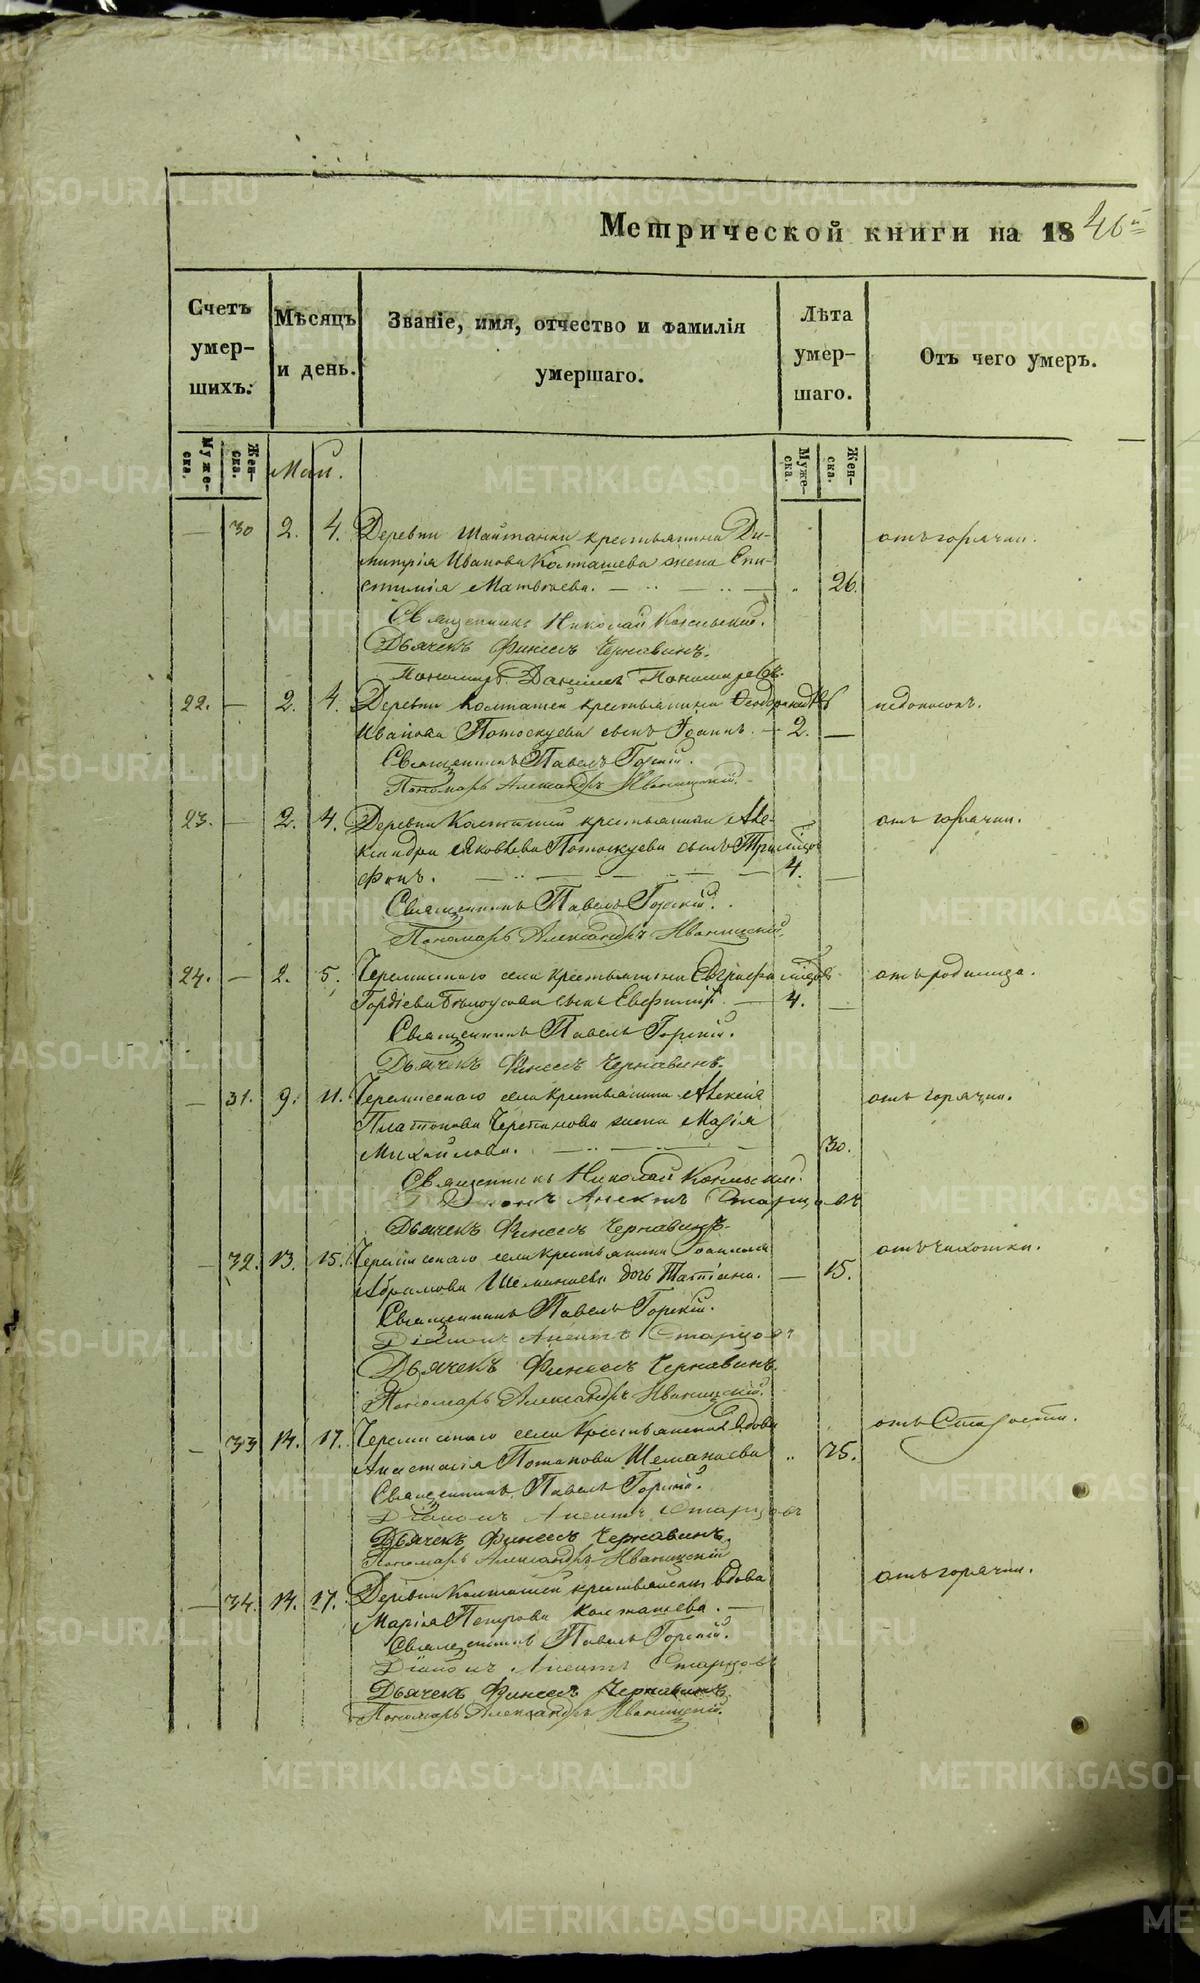 Метрической книги на 1846й
Счетъ умер-шихъ.
Мѣсяцъ и день.
Званіе, имя, отчество и фамилія умершаго.
Лѣта умер-шаго.
Отъ чего умеръ.
Муже-ска.
Жен-ска.
Муже-ска.
Жен-ска.
Маи.
— 30 2. 4. Деревни Шайтанки крестьянина Ди- отъ горячки.
митрія Иванова Колташева жена Епи-
стимія Матвѣева. — 26.
Священникъ Николай
Дьячекъ Финеесъ Чернавинъ.
Пономарь Даніилъ Пономаревъ.
22. — 2. 4. Деревни Колташей крестьянина нед недоносокъ.
Иванова Потоскуева сынъ Іоаннъ. — 2. —
Священникъ Павелъ Горскій.
Пономарь Александръ Иваницкій.
23. — 2. 4. Деревни Колташей крестьянина Але- отъ горячки.
ксандра Яковлева Потоскуева сынъ Три- мѣсяц
фонъ. — 4. —
Священникъ Павелъ Горскій.
Пономарь Александръ Иваницкій.
24. — 2. 5. Черемисскаго села крестьянина Евграфа отъ родимца.
Гордѣева Бѣлоусова сынъ Евфимій. — 4. —
Священникъ Павелъ Горскій.
Дьячекъ Финеесъ Чернавинъ.
— 31. 9. 11. Черемисскаго села крестьянина Алексія отъ горячки.
Платонова Черепанова жена Марія
Михайлова. — 30.
Священникъ Николай
Діаконъ Анектъ Старцовъ
Дьячекъ Финеесъ Чернавинъ.
— 32. 13. 15. Черемисскаго села крестьянина отъ чахотки.
Абрамова Шеманаева дочь Татіана. — 15.
Священникъ Павелъ Горскій.
Діаконъ Анектъ Старцовъ
Дьячекъ Финеесъ Чернавинъ.
Пономарь Александръ Иваницкій.
— 33 14. 17. Черемисскаго села крестьянская вдова отъ Старости.
Анастасія Потапова Шеманаева 75.
Священникъ Павелъ Горскій.
Діаконъ Анектъ Старцовъ
Дьячекъ Финеесъ Чернавинъ.
Пономарь Александръ Иваницкій
— 34. 14. 17. Деревни Колташей крестьянская вдова отъ горячки.
Марія Петрова Колташева. —
Священникъ Павелъ Горскій.
Діаконъ Анектъ Старцовъ
Дьячекъ Финеесъ Чернавинъ.
Пономарь Александръ Иваницкій.
METRIKI.GASO-URAL.RU